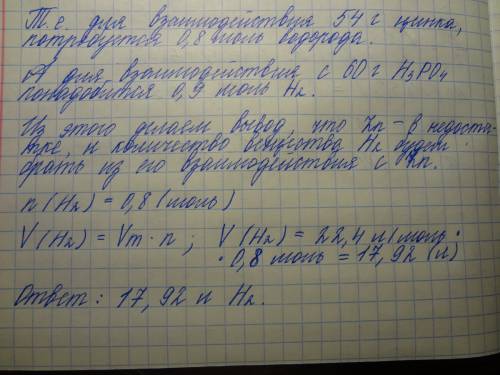 Т.е. для взаимодействия 54 г цинка,
потребуется 0,8 моль водорода.
А для взаимодействия с 60 г H₃PO₄
понадобится 0,9 моль H₂.
Из этого делаем вывод, что Zn – в недоста-
тке, и количество вещества H₂ будем
брать из его взаимодействия с Zn.
n(H₂) = 0,8 (моль)
V(H₂) = Vm · n ; V(H₂) = 22,4 л/моль ·
· 0,8 моль = 17,92 (л)
Ответ: 17,92 л H₂.